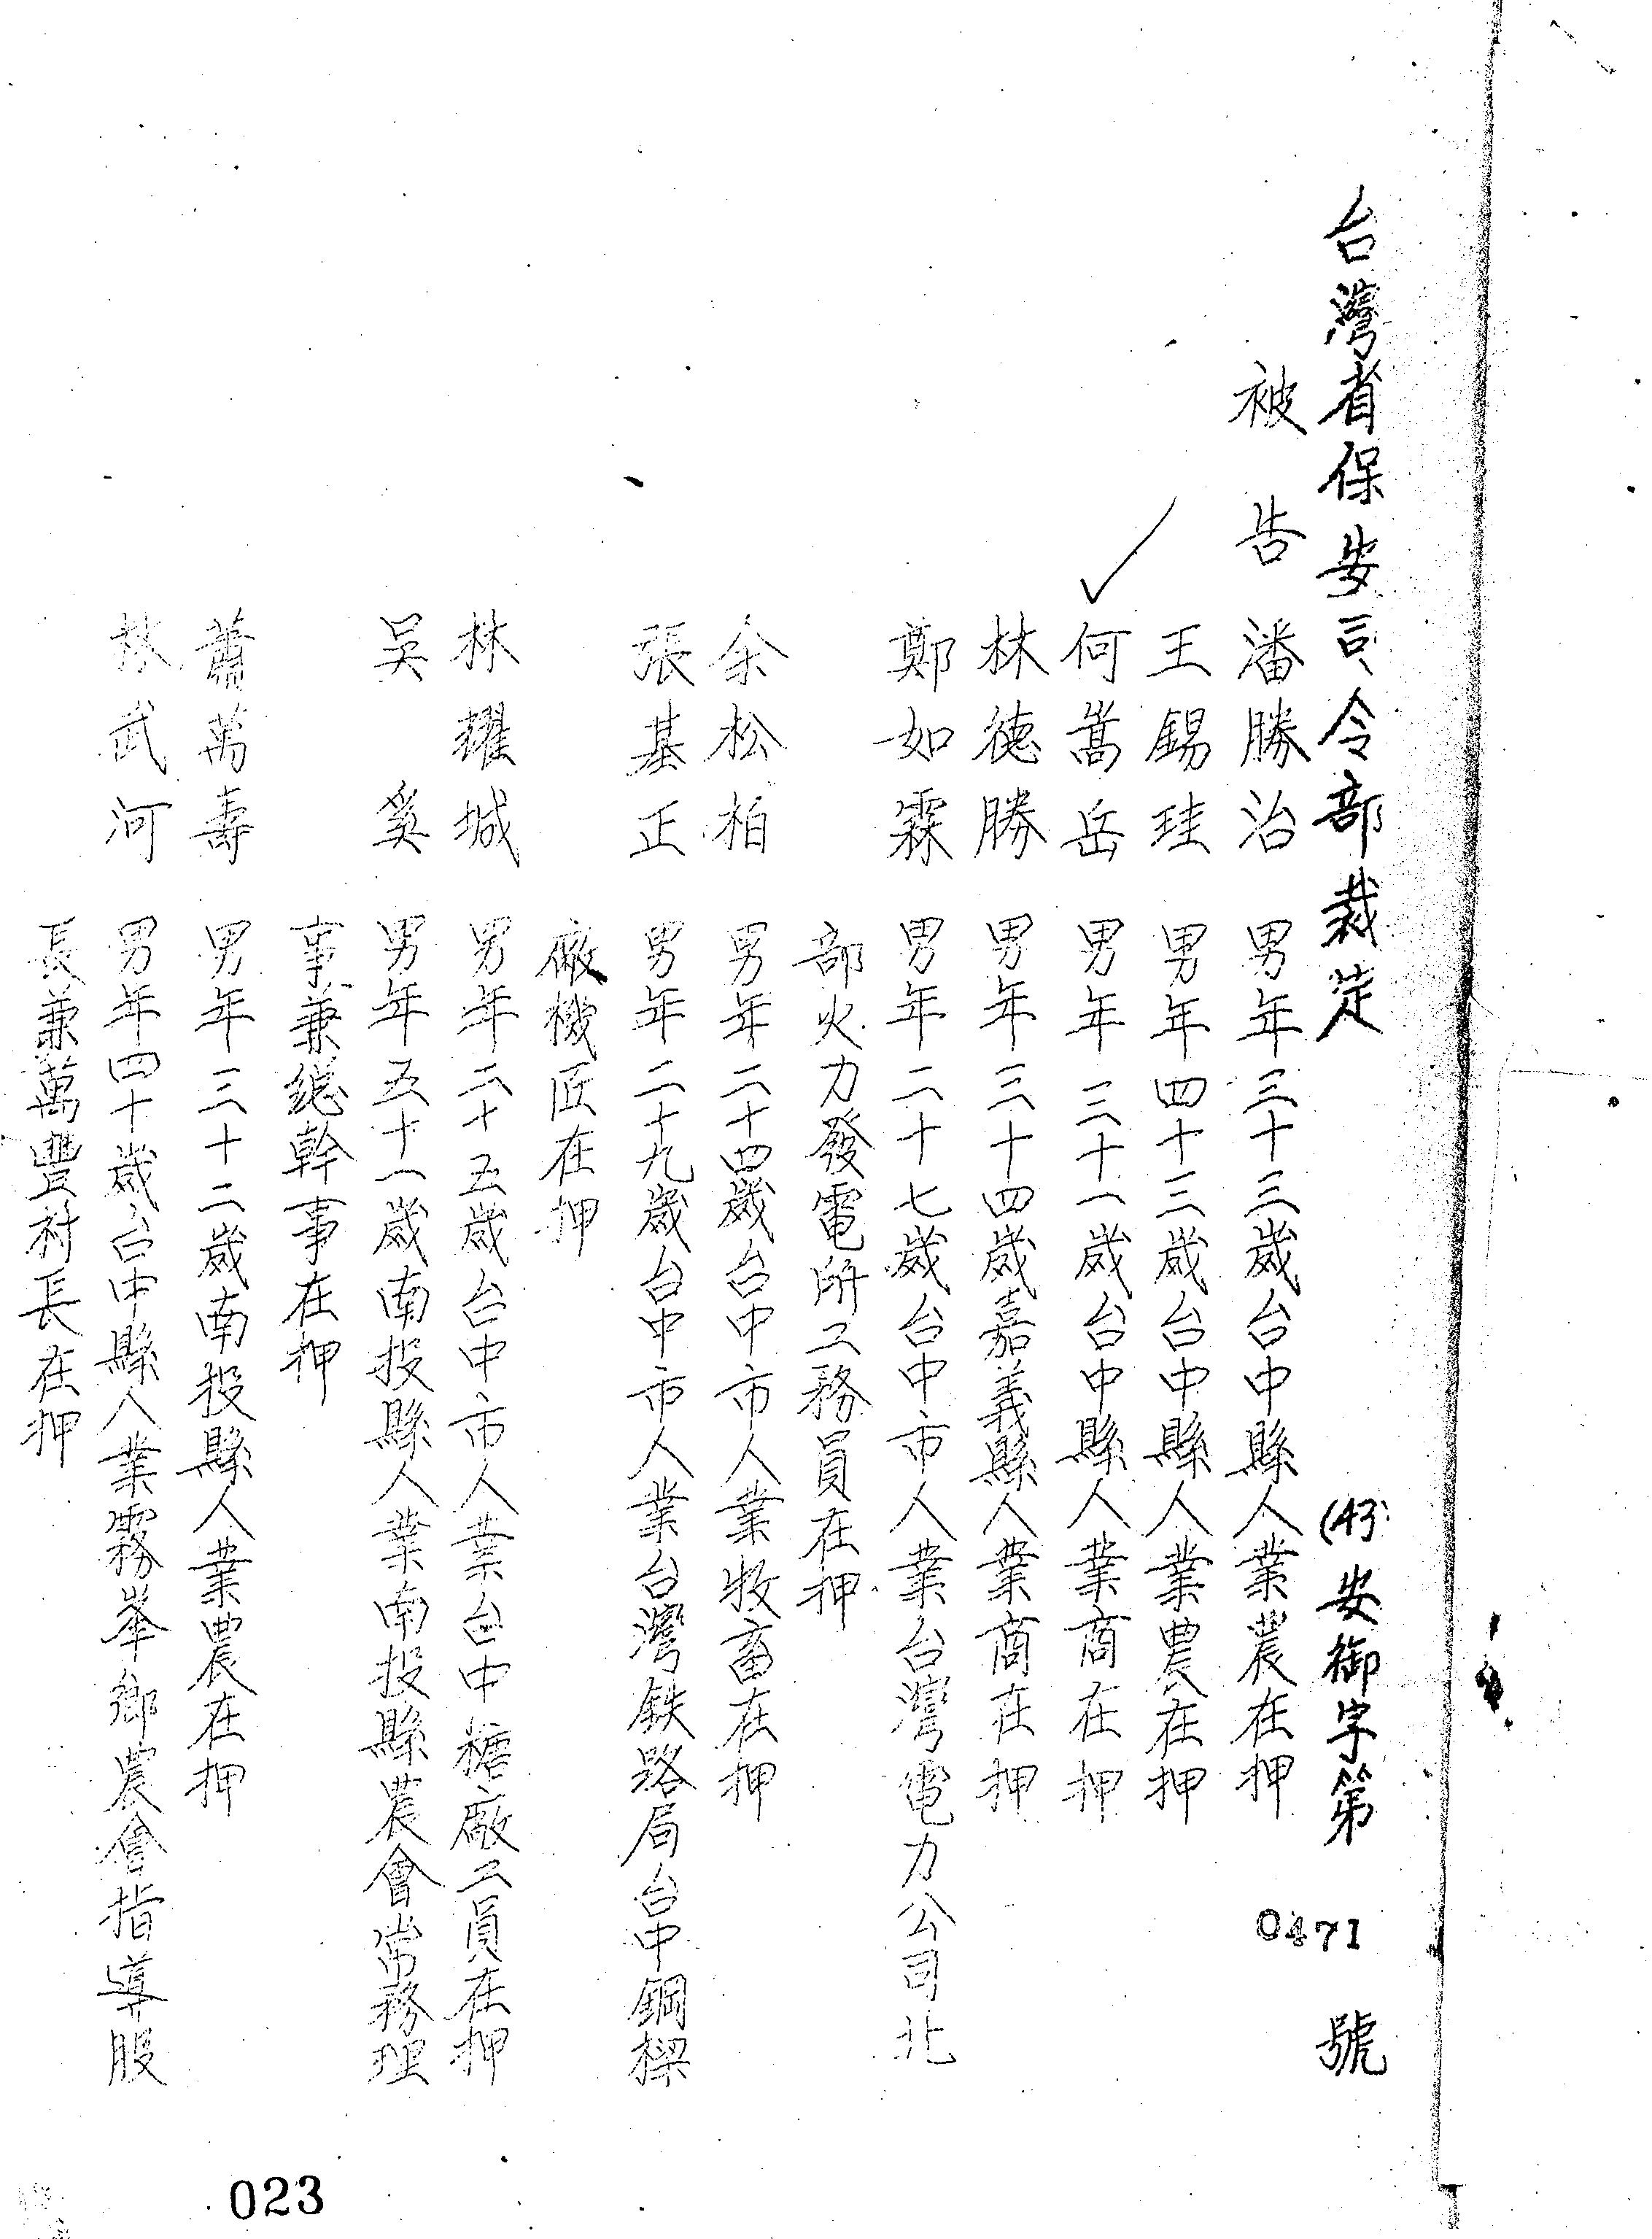 台灣省保安司令部裁定 (43)安御字第0471號
被告 潘勝治 男年三十三歲台中縣人業農在押
王錫珪 男年四十三歲台中縣人業農在押
何嵩岳 男年三十一歲台中縣人業商在押
林德勝 男年三十四歲嘉義縣人業商在押
鄭如霖 男年二十七歲台中市人業台灣電力公司北
部火力發電所工務員在押
余松柏 男年二十四歲台中市人業牧畜在押
張基正 男年二十九歲台中市人業台灣鉄路局台中鋼樑
廠機匠在押
林耀堿 男年二十五歲台中市人業台中糖廠工員在押
吳奚 男年五十一歲南投縣人業南投縣農會常務理
事兼總幹事在押
蕭萬壽 男年三十二歲南投縣人業農在押
林武河 男年四十歲台中縣人業霧峯鄉農會指導股
長兼萬豐村長在押
023